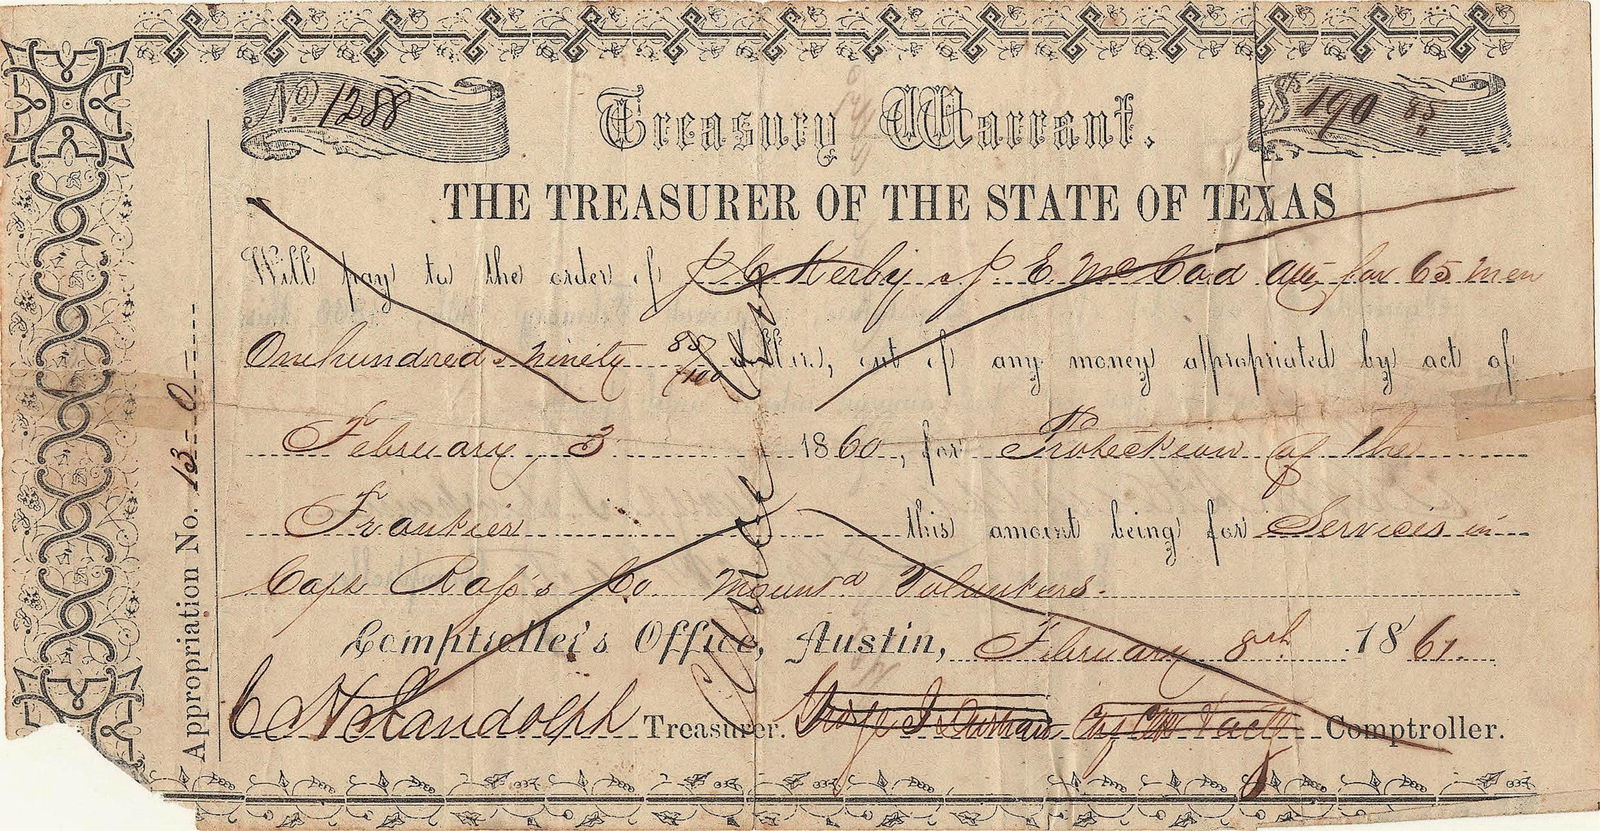 No. 1288
Treasury Warrant.
$ 190 85
THE TREASURER OF THE STATE OF TEXAS
Will pay to the order of J C Kerby J. E. McCord atty for 65 men
One hundred & ninety 85/100 Dollars, out of any money appropriated by act of
February 3 1860, for Protection of the
Frontier this amount being for Services in
Capt Co. Mountd Volunteers.
Comptroller's Office, Austin, February 8th 1861.
C H Randolph Treasurer. Comptroller.
Appropriation No. 13-0